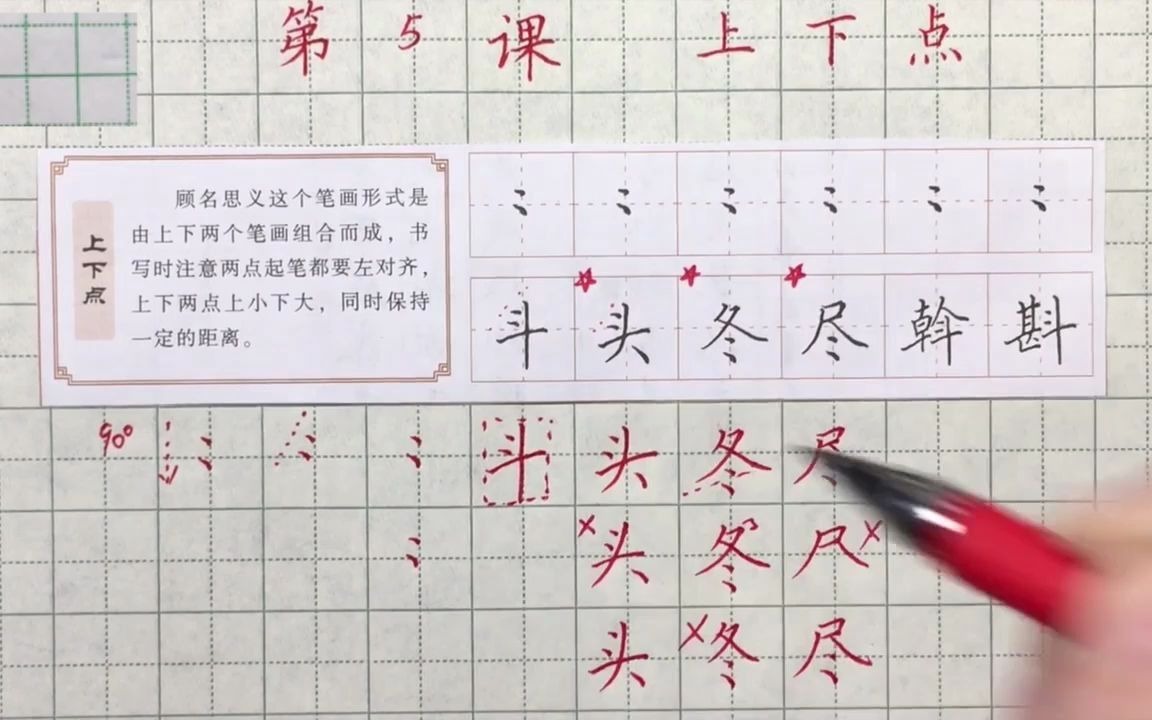 第 5 课 上 下 点
上下点
顾名思义这个笔画形式是
由上下两个笔画组合而成，书
写时注意两点起笔都要左对齐，
上下两点上小下大，同时保持
一定的距离。
斗 头 冬 尽 斡 斟
90° 斗 头 冬 尽
头 冬 尽
头 冬 尽